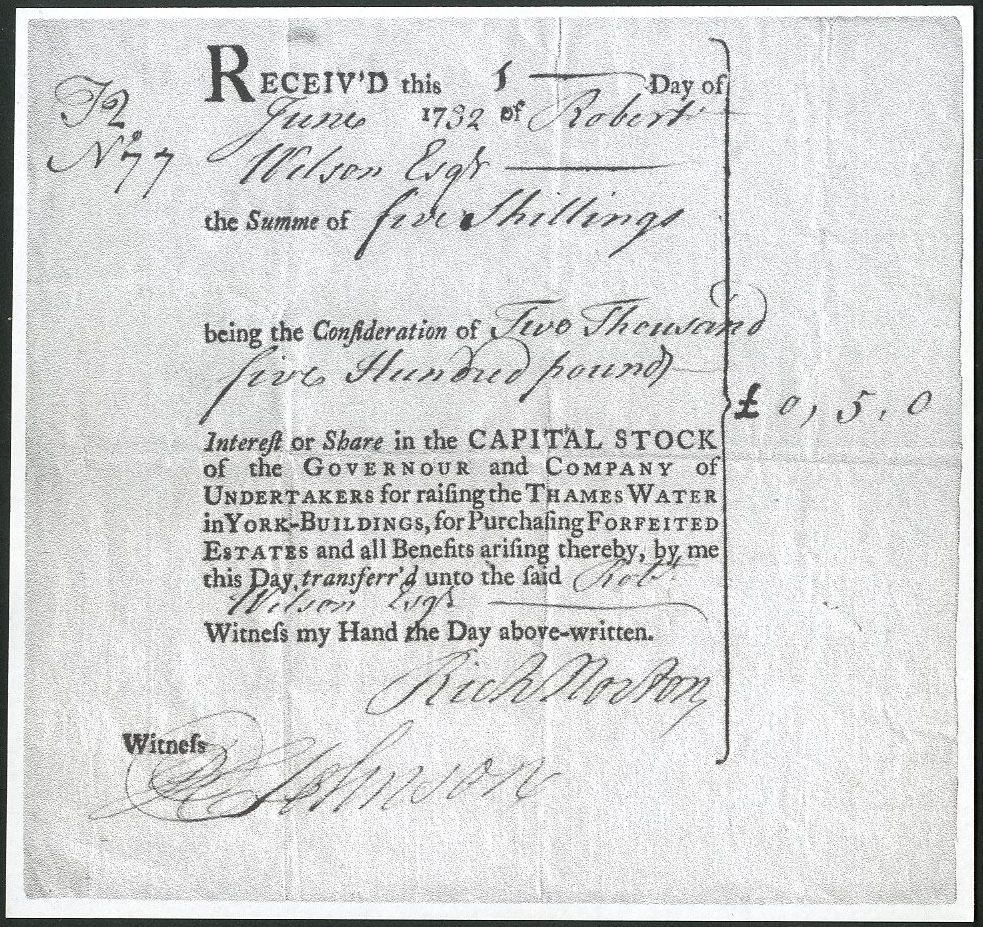 RECEIV'D this 1 Day of
June 1732 of Robert
Wilson Esqr
No 77
the Summe of five Shillings
being the Conſideration of Two Thousand
five Hundred pounds
£ 0, 5, 0
Intereſt or Share in the CAPITAL STOCK
of the GOVERNOUR and COMPANY of
UNDERTAKERS for raiſing the THAMES WATER
in YORK-BUILDINGS, for Purchaſing FORFEITED
ESTATES and all Benefits ariſing thereby, by me
this Day, transferr'd unto the ſaid Robt
Wilson Esqr
Witneſs my Hand the Day above-written.
Rich Norton
Witneſs
Johnson